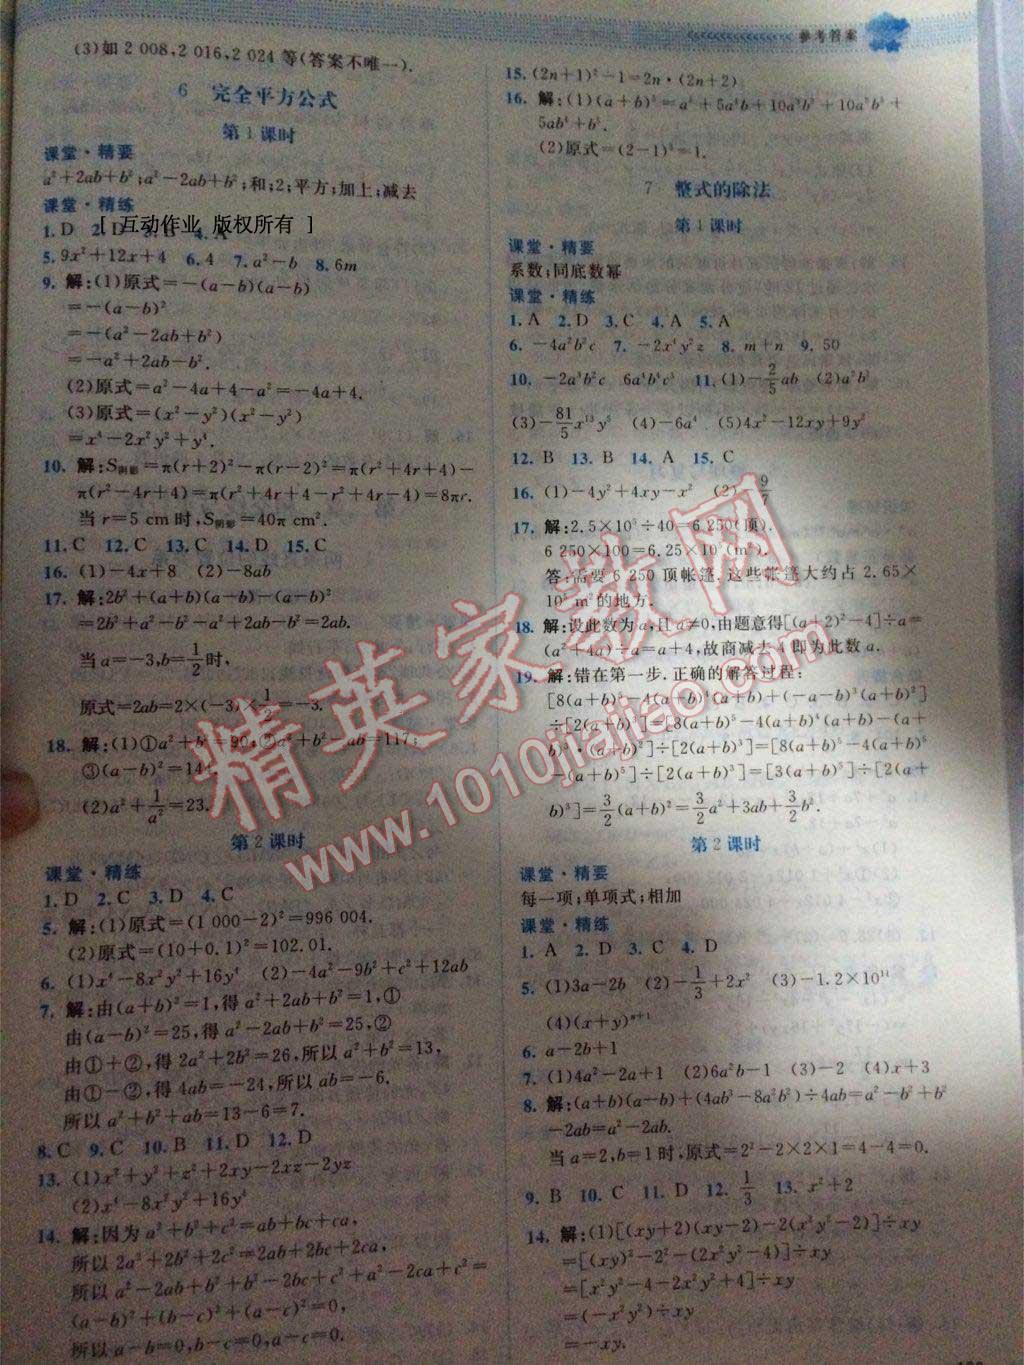 参考答案
(3)如 2 008,2 016,2 024 等(答案不唯一).
6 完全平方公式
第1课时
课堂·精要
a²+2ab+b²;a²-2ab+b²;和;2;平方;加上;减去
课堂·精练
[ 互动作业 版权所有 ]
1. D 2. D 3. 4. A
5. 9x²+12x+4 6. 4 7. a²-b 8. 6m
9. 解:(1)原式=-(a-b)(a-b)
=-(a-b)²
=-(a²-2ab+b²)
=-a²+2ab-b².
(2)原式=a²-4a+4-a²=-4a+4.
(3)原式=(x²-y²)(x²-y²)
=x⁴-2x²y²+y⁴.
10. 解:S阴影=π(r+2)²-π(r-2)²=π(r²+4r+4)-
π(r²-4r+4)=π(r²+4r+4-r²+4r-4)=8πr.
当 r=5 cm 时,S阴影=40π cm².
11. C 12. C 13. C 14. D 15. C
16. (1)-4x+8 (2)-8ab
17. 解:2b²+(a+b)(a-b)-(a-b)²
=2b²+a²-b²-a²+2ab-b²=2ab.
当 a=-3,b=1/2时,
原式=2ab=2×(-3)×1/2=-3.
18. 解:(1)①a²+b²=90,②a²-ab+b²=117;
③(a-b)²=14
(2)a²+1/a²=23.
第2课时
课堂·精练
1. D 2. C 3. D 4. C
5. 解:(1)原式=(1 000-2)²=996 004.
(2)原式=(10+0.1)²=102.01.
6. (1)x⁴-8x²y²+16y⁴ (2)-4a²-9b²+c²+12ab
7. 解:由(a+b)²=1,得 a²+2ab+b²=1,①
由(a-b)²=25,得 a²-2ab+b²=25,②
由①+②,得 2a²+2b²=26,所以 a²+b²=13,
由①-②,得 4ab=-24,所以 ab=-6.
所以 a²+b²+ab=13-6=7.
8. C 9. C 10. B 11. D 12. D
13. (1)x²+y²+z²+2xy-2xz-2yz
(2)x⁴-8x²y²+16y⁴
14. 解:因为 a²+b²+c²=ab+bc+ca,
所以 2a²+2b²+2c²=2ab+2bc+2ca,
所以 a²-2ab+b²+b²-2bc+c²+a²-2ca+c²=
(a-b)²+(b-c)²+(a-c)²=0,
所以 a-b=0,b-c=0,a-c=0.
15. (2n+1)²-1=2n·(2n+2)
16. 解:(1)(a+b)⁵=a⁵+5a⁴b+10a³b²+10a²b³+
5ab⁴+b⁵.
(2)原式=(2-1)⁵=1.
7 整式的除法
第1课时
课堂·精要
系数;同底数幂
课堂·精练
1. A 2. D 3. C 4. A 5. A
6. -4a²b²c 7. -2x⁴y²z 8. m+n 9. 50
10. -2a³b²c 6a⁴b⁴c³ 11. (1)-2/5ab (2)a²b²
(3)-81/5x¹³y⁵ (4)-6a⁴ (5)4x²-12xy+9y²
12. B 13. B 14. A 15. C
16. (1)-4y²+4xy-x² (2)-9/7
17. 解:2.5×10⁵÷40=6 250(顶).
6 250×100=6.25×10⁵(m²).
答:需要 6 250 顶帐篷.这些帐篷大约占 2.65×
10⁵ m²的地方.
18. 解:设此数为 a,且 a≠0,由题意得[(a+2)²-4]÷a=
(a²+4a)÷a=a+4,故商减去 4 即为此数 a.
19. 解:错在第一步.正确的解答过程:
[8(a+b)⁵-4(a+b)⁴(a+b)+(-a-b)³(a+b)²]
÷[2(a+b)³]=[8(a+b)⁵-4(a+b)⁴(a+b)-(a+
b)³·(a+b)²]÷[2(a+b)³]=[8(a+b)⁵-4(a+b)⁵
-(a+b)⁵]÷[2(a+b)³]=[3(a+b)⁵]÷[2(a+
b)³]=3/2(a+b)²=3/2a²+3ab+3/2b².
第2课时
课堂·精要
每一项;单项式;相加
课堂·精练
1. A 2. D 3. C 4. D
5. (1)3a-2b (2)-1/3+2x² (3)-1.2×10¹¹
(4)(x+y)ⁿ⁺¹
6. a-2b+1
7. (1)4a²-2a+1 (2)6a²b-1 (3)-2 (4)x+3
8. 解:(a+b)(a-b)+(4ab³-8a²b²)÷4ab=a²-b²+b²
-2ab=a²-2ab.
当 a=2,b=1 时,原式=2²-2×2×1=4-4=0.
9. B 10. C 11. D 12. 1/3 13. x²+2
14. 解:(1)[(xy+2)(xy-2)-2(x²y²-2)]÷xy
=[(xy)²-2²-(2x²y²-4)]÷xy
=[x²y²-4-2x²y²+4]÷xy
=(-x²y²)÷xy
=-xy.
精英家教网
www.1010jiajiao.com